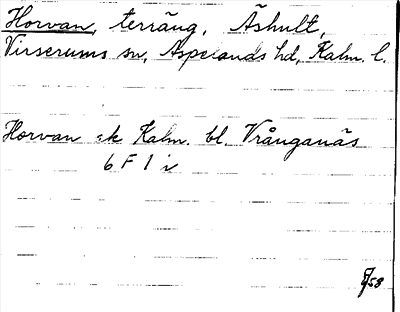 Horvan, terräng, Åshult,
Virserums sn, Aspelands hd, Kalm. l.
Horvan ek Kalm. bl. Vrånganäs
6 F 1 i
58